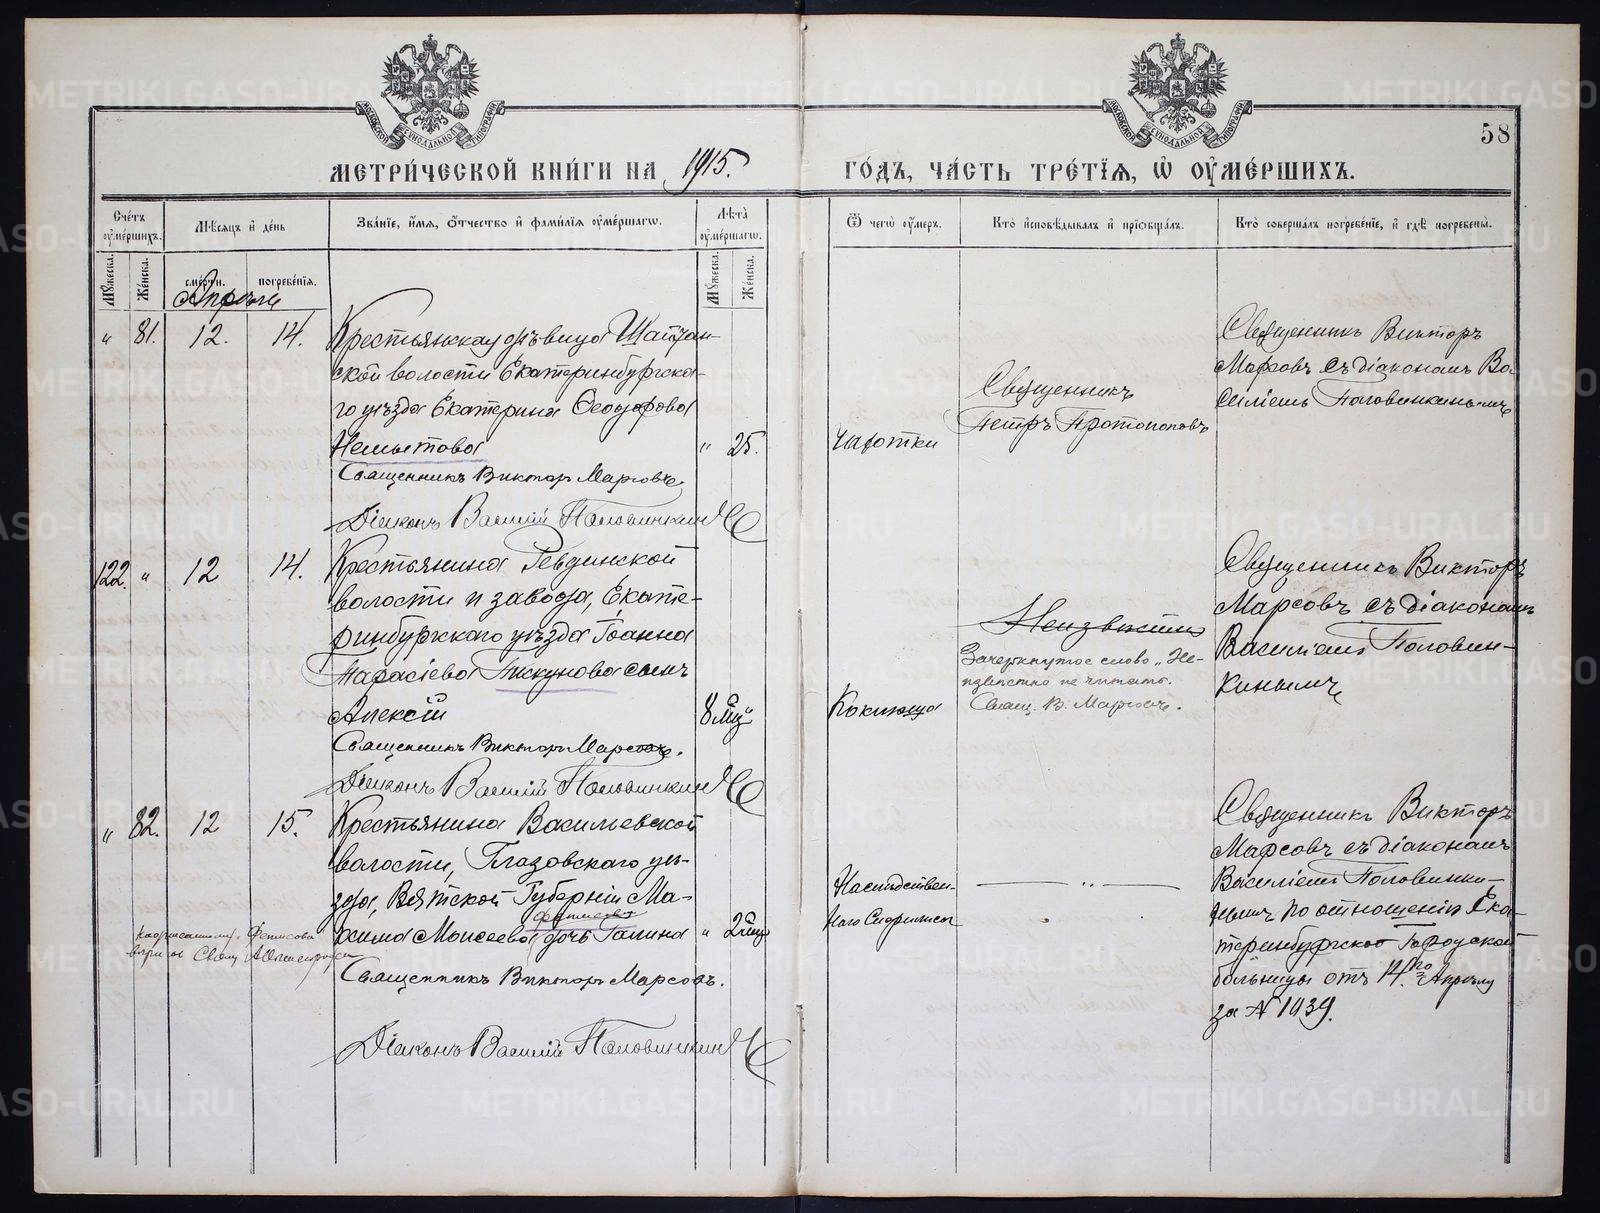 58
МЕТРИ́ЧЕСКОЙ КНИ́ГИ НА 1915.
ГО́ДЪ, ЧА́СТЬ ТРЕ́ТЇѦ, Ѡ҆ ОУ҆МЕ́РШИХЪ.
Сче́тъ оу҆ме́ршихъ.
Мꙋ́жеска.
Же́нска.
Мѣ́сѧцъ и҆ де́нь
сме́рти.
погребе́нїѧ.
Зва́нїе, и҆́мѧ, ѻ҆́тчество и҆ фами́лїѧ оу҆ме́ршагѡ.
Лѣ́та оу҆ме́ршагѡ.
Мꙋ́жеска.
Же́нска.
Ѿ чегѡ̀ оу҆́меръ.
Кто̀ и҆сповѣ́дывалъ и҆ прїѻбща́лъ.
Кто̀ соверша́лъ погребе́нїе, и҆ гдѣ̀ погребены̀.
Апрѣль
„ 81. 12. 14.
Крестьянская дѣвица Шайтан-
ской волости Екатеринбургска-
го уѣзда Екатерина Ѳеодорова
Немытова
„ 25.
Священникъ Викторъ Марсовъ.
Діаконъ Василій Половинкинъ
чахотки
Священникъ
Петръ Протопоповъ
Священникъ Викторъ
Марсовъ съ діакономъ Ва-
силіемъ Половинкинымъ
122. „ 12 14.
Крестьянина Ревдинской
волости и завода, Екате-
ринбургскаго уѣзда Іоанна
Тарасіева Пискунова сынъ
Алексій
8 мц.
Священникъ Викторъ Марсовъ.
Діаконъ Василій Половинкинъ
Коклюша
Неизвѣстно
Зачеркнутое слово „Не-
извѣстно не читать.
Свящ. В. Марсовъ.
Священникъ Викторъ
Марсовъ съ діакономъ
Василіемъ Половин-
кинымъ
„ 82. 12 15.
Крестьянина Васильевской
волости, Глазовскаго уѣ-
зда, Вятской Губерніи Ма-
ксима Моисеева дочь Галина
„ 2 мц.
Священникъ Викторъ Марсовъ.
Діаконъ Василій Половинкинъ
Наслѣдствен-
наго Сифилиса
— „ —
Священникъ Викторъ
Марсовъ съ діакономъ
Василіемъ Половинки-
нымъ по отношенію Ека-
теринбургской Городской
больницы отъ 14.го Апрѣля
за № 1039.
METRIKI.GASO-URAL.RU